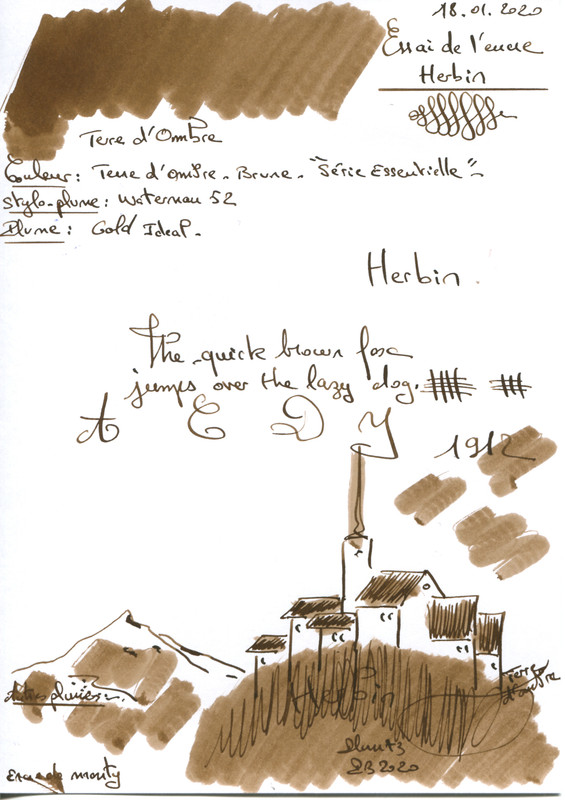 18.01.2020
Essai de l'encre
Herbin
Terre d'Ombre
Couleur: Terre d'ombre - Brune - "Série Essentielle" -
Stylo-plume: Waterman 52
Plume: Gold Ideal -
Herbin.
The quick brown fox
jumps over the lazy dog.
A C D Y
1912
Herbin
Terre
d'ombre
2020